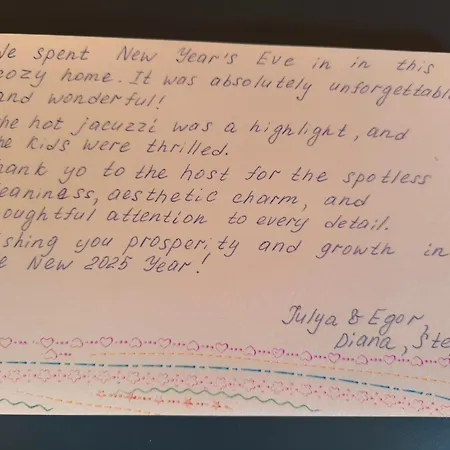 We spent New Year's Eve in in this
cozy home. It was absolutely unforgettable
and wonderful!
The hot jacuzzi was a highlight, and
the kids were thrilled.
Thank yo to the host for the spotless
cleaniness, aesthetic charm, and
thoughtful attention to every detail.
Wishing you prosperity and growth in
the New 2025 Year!
Julya & Egor,
Diana, Ste